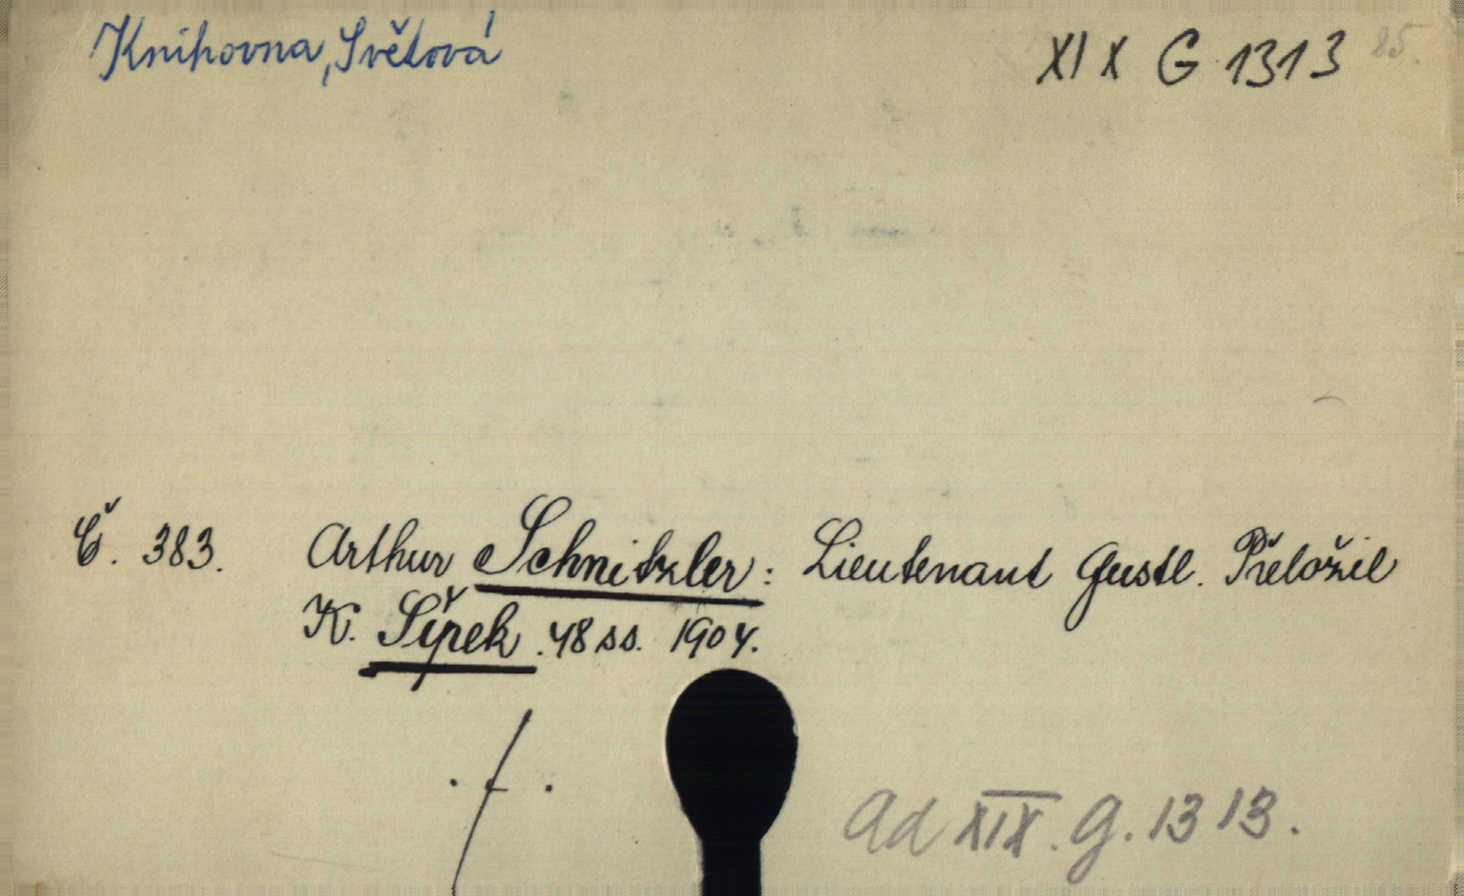 Knihovna, Světová
XIX G 1313 85.
Č. 383. Arthur Schnitzler: Lieutenant Gustl. Přeložil
K. Šípek. 48 ss. 1904.
ad XIX. G. 1313.